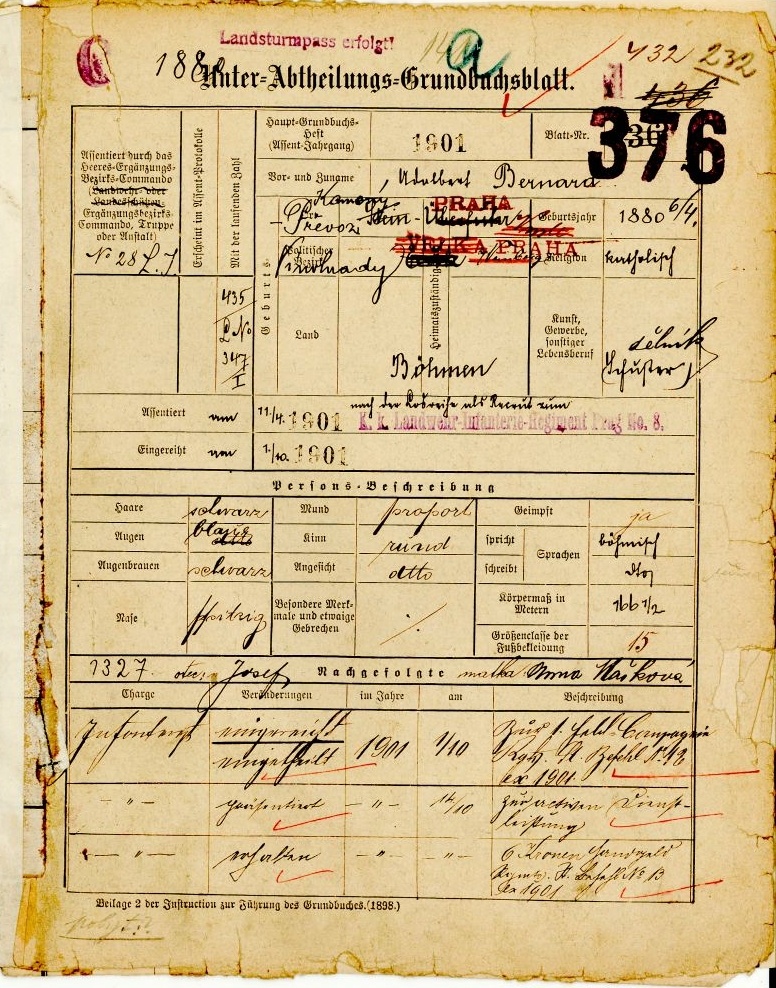 Landsturmpass erfolgt!
1880
432 232
Unter-Abtheilungs-Grundbuchsblatt.
376
Assentiert durch das
Heeres-Ergänzungs-
Bezirks-Commando
(Landwehr- oder
Landesschützen-
Ergänzungsbezirks-
Commando, Truppe
oder Anstalt)
No 28
Erscheint im Assent-Protokolle
Mit der laufenden Zahl
435
347
I
Haupt-Grundbuchs-
Heft
(Assent-Jahrgang)
1901
Blatt-Nr.
36
Vor- und Zuname
Adalbert Bernard
Geburts-
Ort
Politischer
Bezirk
Vinohrady
Land
Heimatszuständig
PRAHA
VELKA PRAHA
Böhmen
Geburtsjahr
1880 6/4.
Religion
katholisch
Kunst,
Gewerbe,
sonstiger
Lebensberuf
Schuster
Assentiert am 11/4. 1901
nach der Losreihe als Recrut zum
k. k. Landwehr-Infanterie-Regiment Prag No. 8.
Eingereiht am 1/10. 1901
Persons-Beschreibung
Haare schwarz
Mund proport
Geimpft ja
Augen blau
Kinn rund
spricht
schreibt
Sprachen
böhmisch
dto
Augenbrauen schwarz
Angesicht dtto
Nase spitzig
Besondere Merk-
male und etwaige
Gebrechen
./.
Körpermaß in
Metern
166 1/2
Größenclasse der
Fußbekleidung
15
1327. otec: Josef Nachgefolgte matka Anna
Charge Veränderungen im Jahre am Beschreibung
Infanterist eingereiht
eingetheilt 1901 1/10 Zur 1. Feld-Compagnie
Rgts. K. Befehl No 12
ex 1901.
-"- präsentiert -"- 14/10 zur activen Dienst-
leistung
-"- erhalten -"- -"- 6 Kronen Handgeld
Rgmts. K. Befehl No 13
ex 1901
Beilage 2 der Instruction zur Führung des Grundbuches. (1898.)